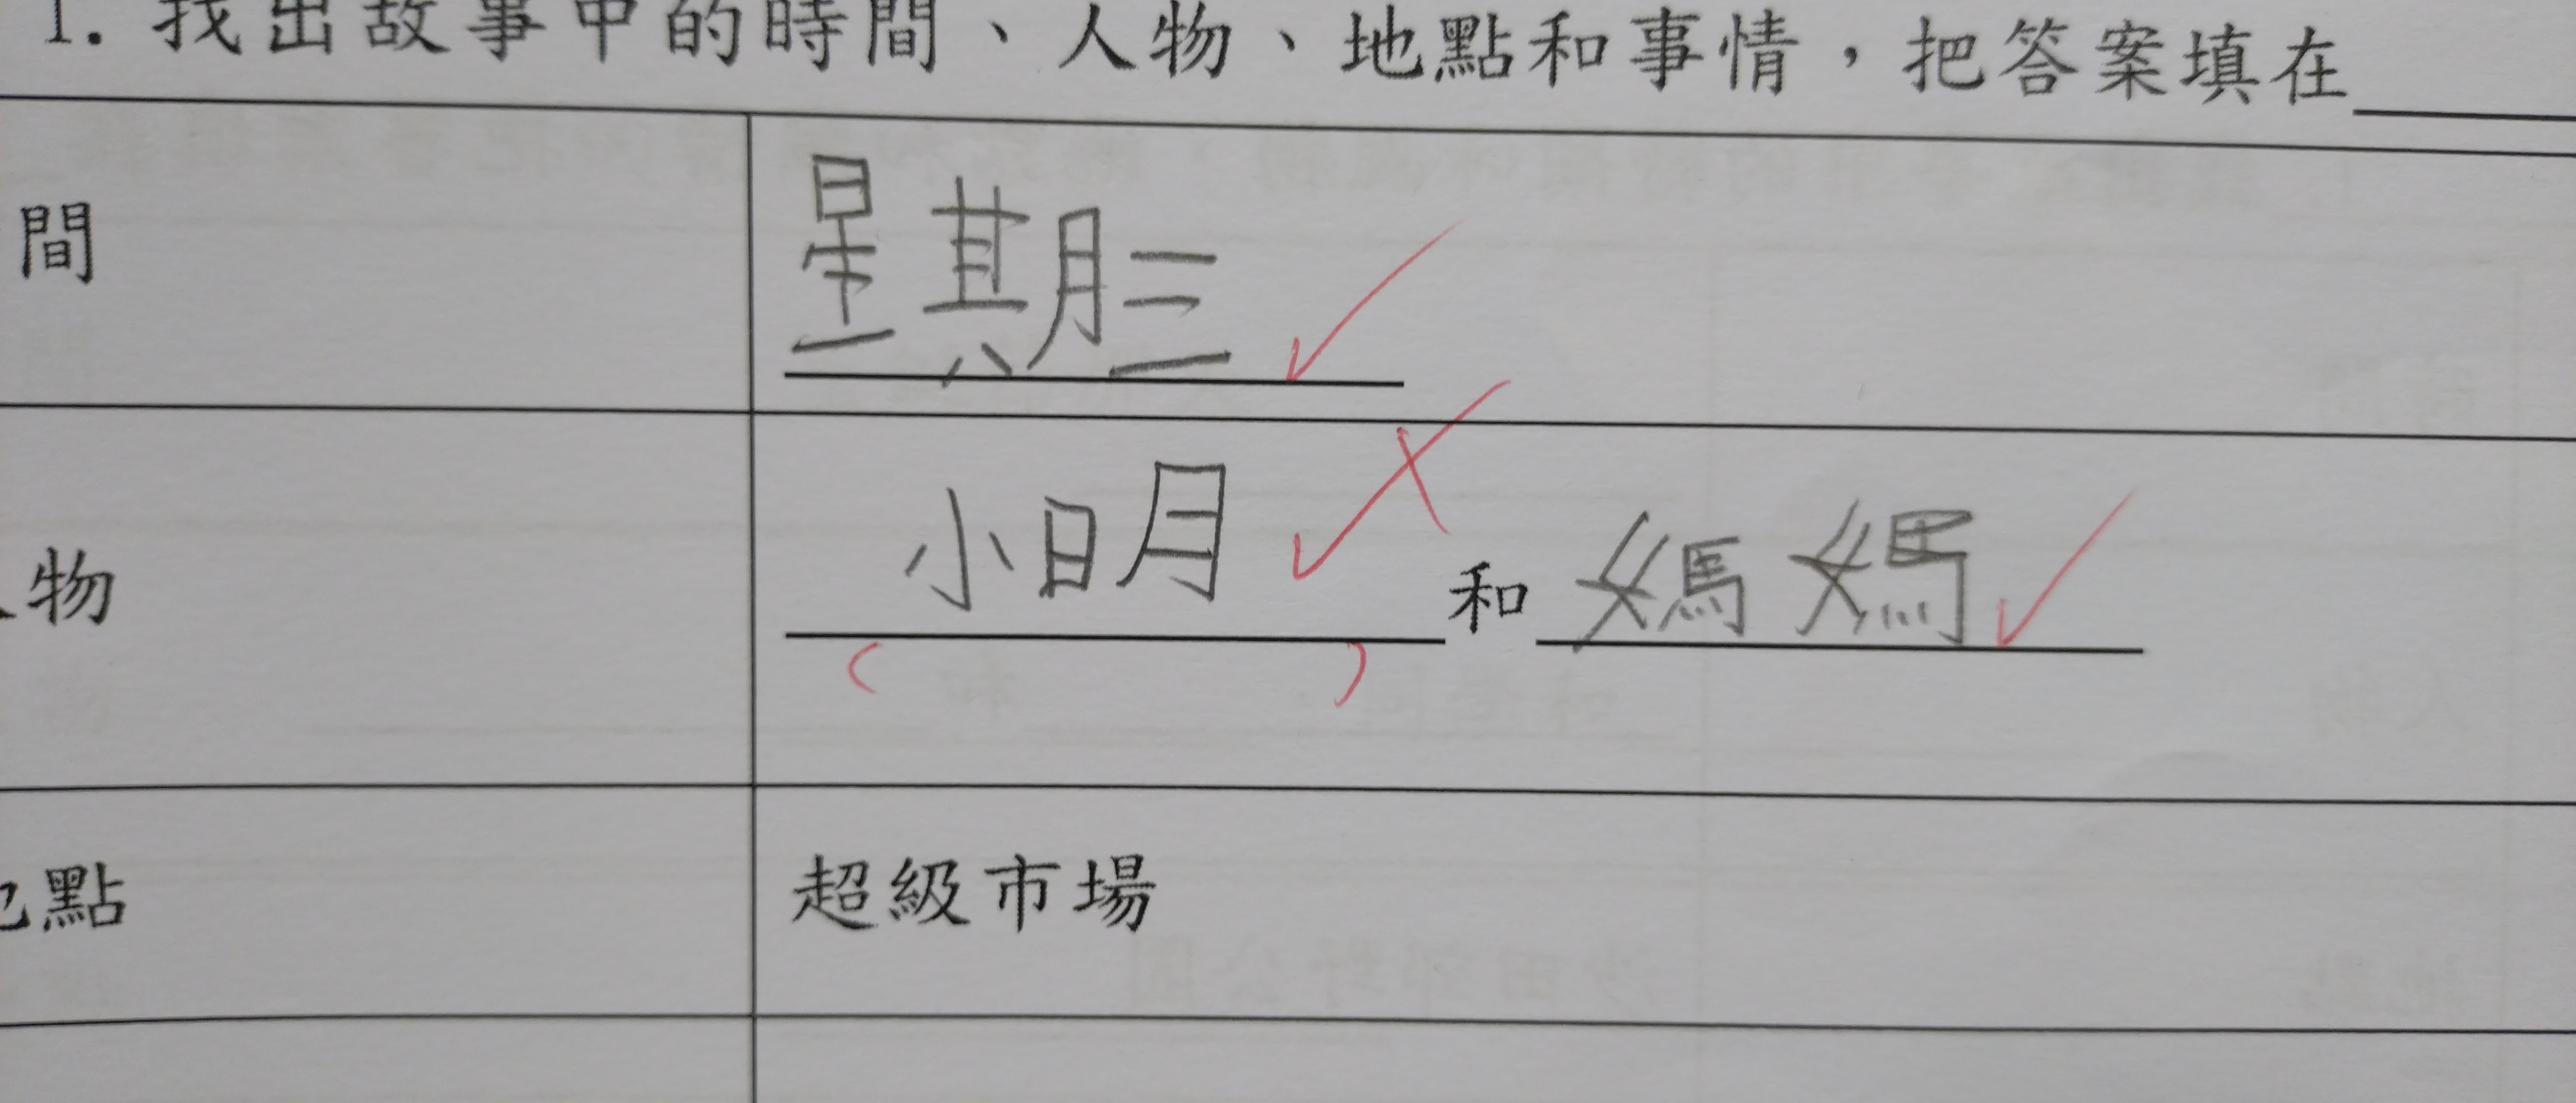 1. 找出故事中的時間、人物、地點和事情，把答案填在
間
星期三
物
小明 和 媽媽
點
超級市場